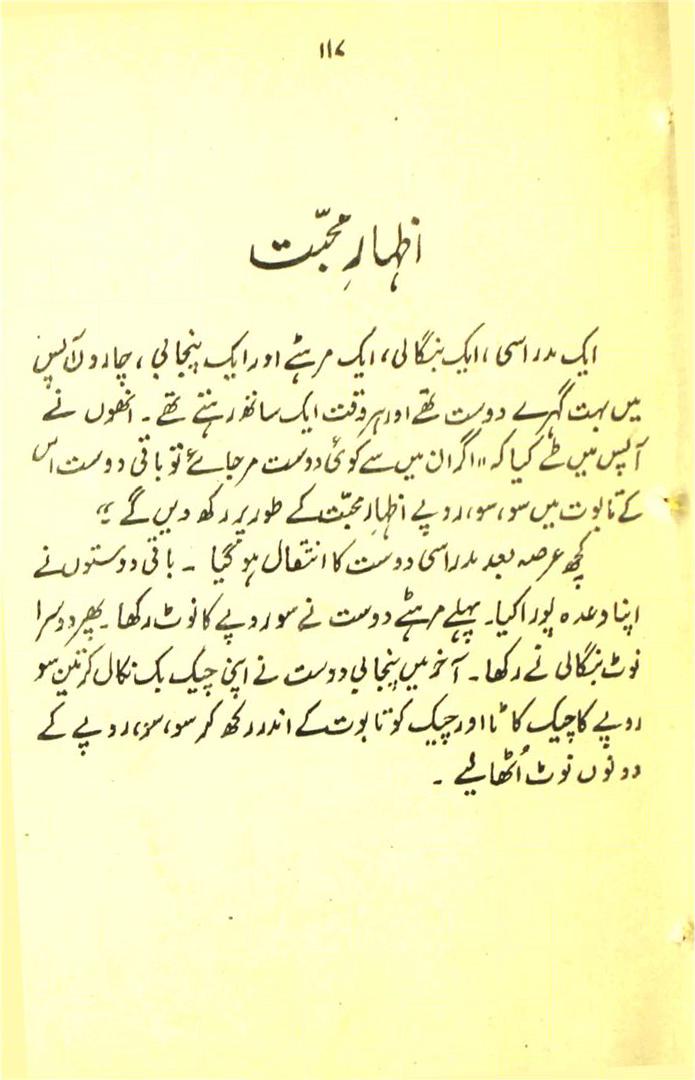 ۱۱۷
اظہارِ محبّت
ایک مدراسی، ایک بنگالی، ایک مرہٹے اور ایک پنجابی، چاروں آپس
میں بہت گہرے دوست تھے اور ہر وقت ایک ساتھ رہتے تھے۔ انھوں نے
آپس میں طے کیا کہ "اگر ان میں سے کوئی دوست مر جائے تو باقی دوست اس
کے تابوت میں سو، سو، روپے اظہارِ محبّت کے طور پر رکھ دیں گے"
کچھ عرصہ بعد مدراسی دوست کا انتقال ہو گیا ۔ باقی دوستوں نے
اپنا وعدہ پورا کیا۔ پہلے مرہٹے دوست نے سو روپے کا نوٹ رکھا۔ پھر دوسرا
نوٹ بنگالی نے رکھا۔ آخر میں پنجابی دوست نے اپنی چیک بک نکال کر تین سو
روپے کا چیک کاٹا اور چیک کو تابوت کے اندر رکھ کر سو، سو، روپے کے
دونوں نوٹ اُٹھا لیے ۔